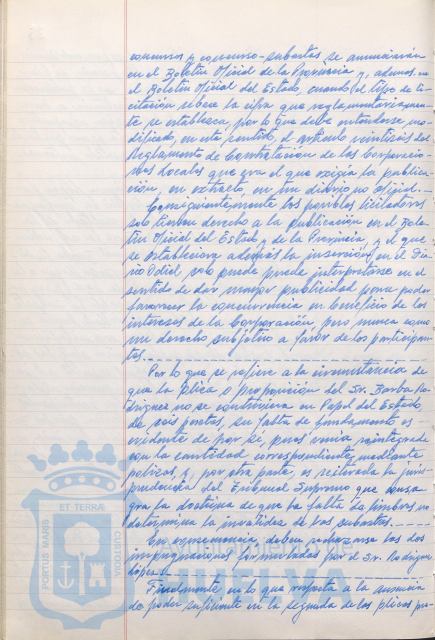 concursos y concurso-subastas se anunciarán
en el Boletín Oficial de la Provincia y, además, en
el Boletín Oficial del Estado, cuando el tipo de li-
citación rebase la cifra que reglamentariamen-
te se establezca, por lo que debe entenderse mo-
dificado, en este sentido, el artículo veintiseis del
Reglamento de Contratación de las Corporacio-
nes Locales que era el que exigía la publica-
ción, en extracto, en un diario no oficial.
Consiguientemente los posibles licitadores
solo tienen derecho a la publicación en el Bole-
tín Oficial del Estado y de la Provincia, y el que
se estableciera además la inserción en el Dia-
rio Odiel solo puede puede interpretarse en el
sentido de dar mayor publicidad para poder
favorecer la concurrencia en beneficio de los
intereses de la Corporación, pero nunca como
un derecho subjetivo a favor de los participan-
tes.
Por lo que se refiere a la circunstancia de
que la plica o proposición del Sr. Barba Ro-
driguez no se contuviera en Papel del Estado
de seis pesetas, su falta de fundamento es
evidente de por sí, pues venía reintegrada
con la cantidad correspondiente mediante
polizas, y, por otra parte, es reiterada la juris-
prudencia del Tribunal Supremo que consa-
gra la doctrina de que la falta de timbre no
determina la invalidez de las subastas.
En consecuencia, deben rechazarse las dos
impugnaciones formuladas por el Sr. Rodriguez
López.
Finalmente, en lo que respecta a la ausencia
de poder suficiente en la segunda de las plicas pre-
PORTUS MARIS
ET TERRÆ
CUSTODIA
HUELVA